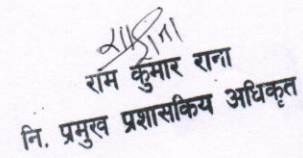 राम कुमार राना
नि. प्रमुख प्रशासकिय अधिकृत